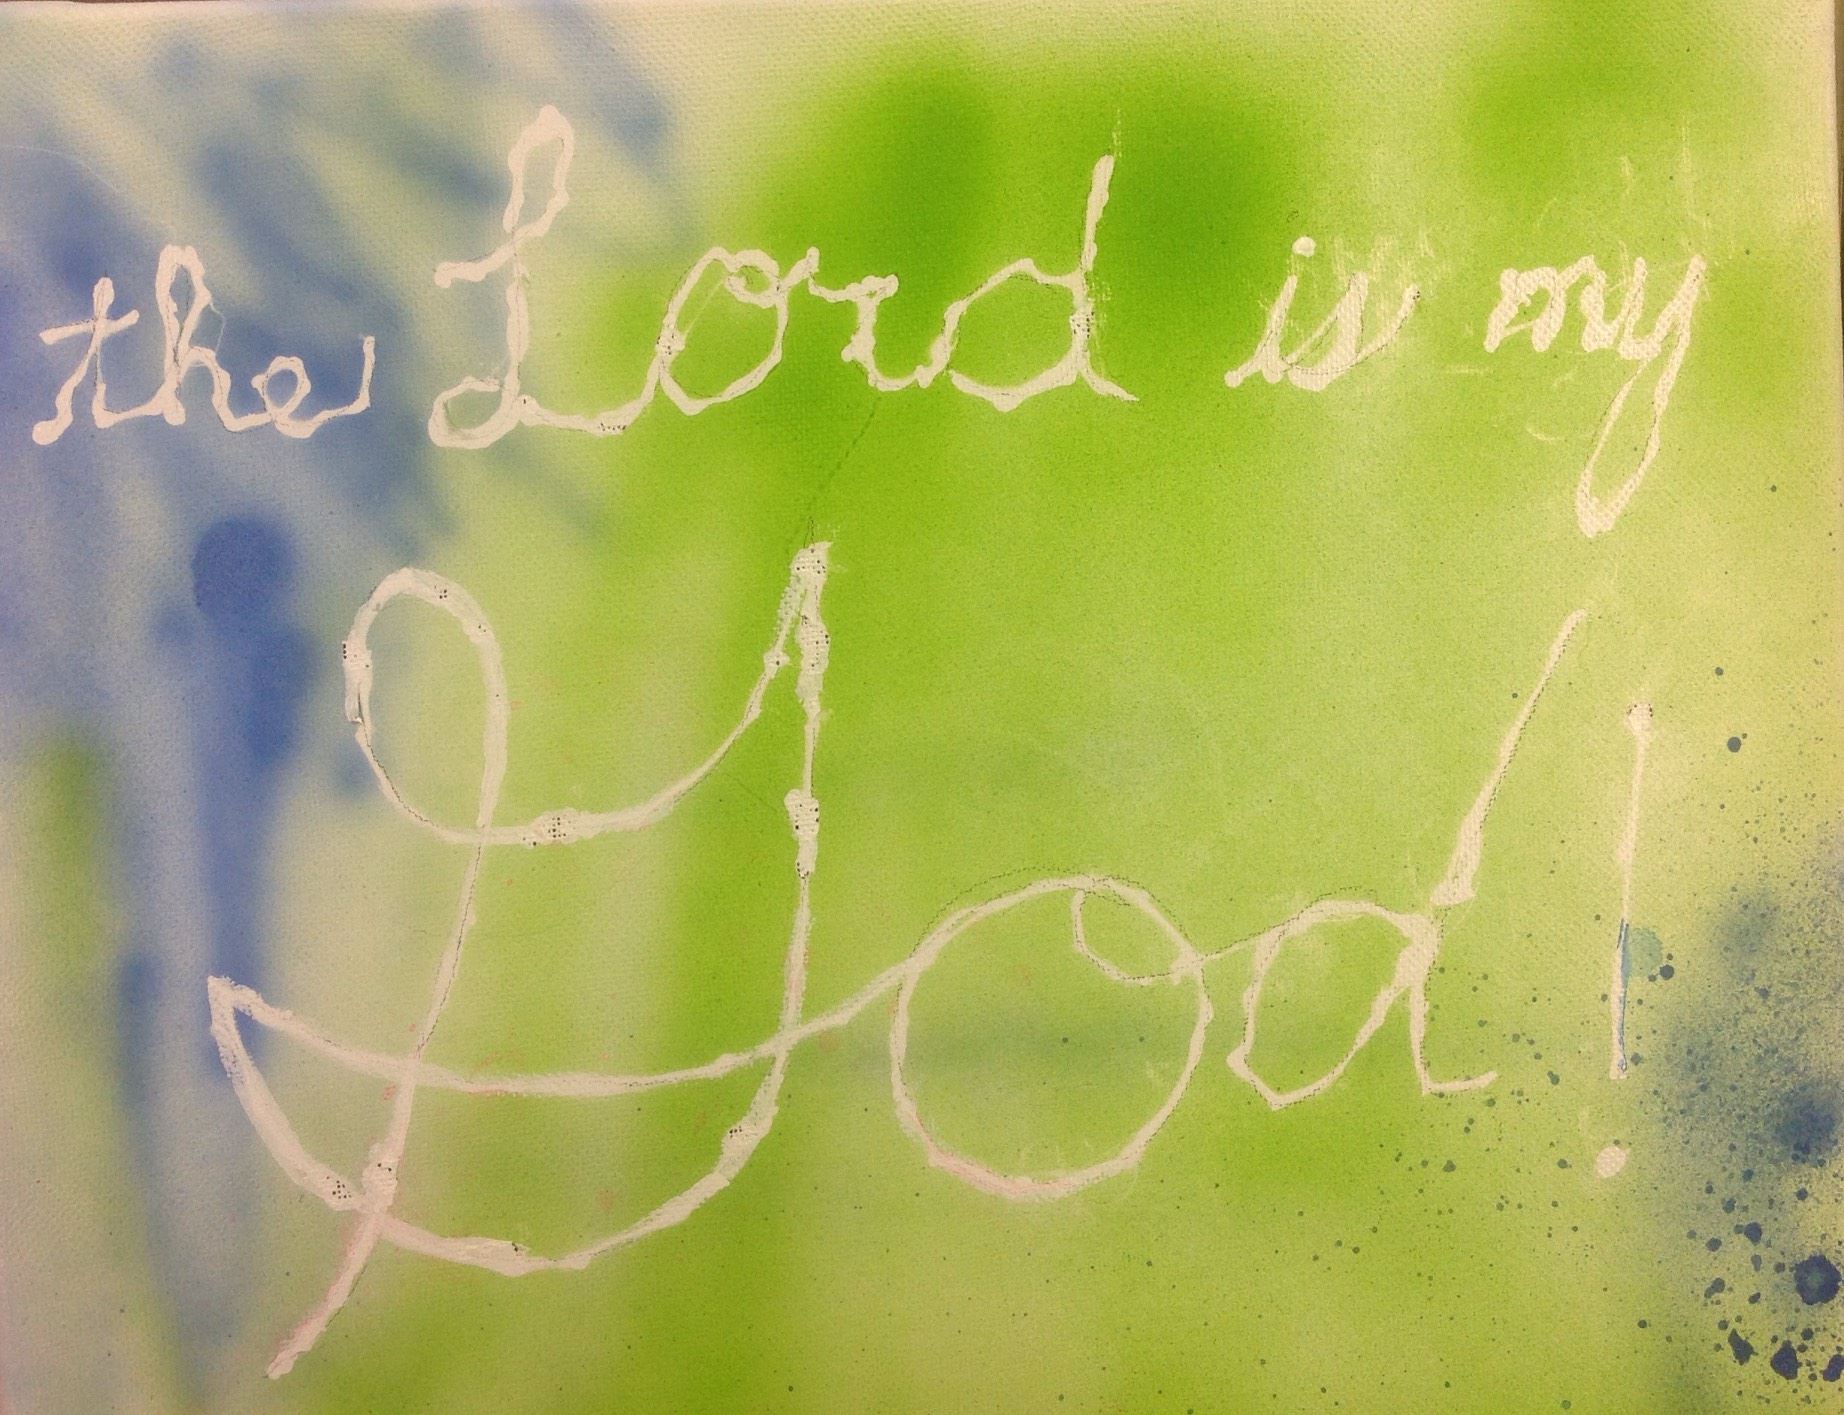 the Lord is my
God!